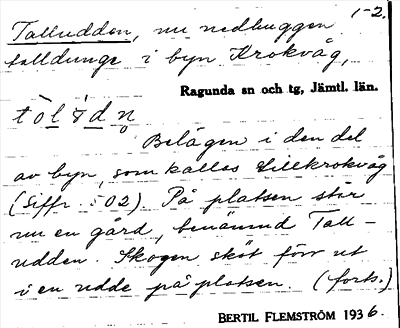 1-2.
Talludden, nu nedhuggen
talldunge i byn Krokvåg,
Ragunda sn och tg, Jämtl. län.
Belägen i den del
av byn, som kallas Lillkrokvåg
(Siffr. 502). På platsen står
nu en gård, benämnd Tall-
udden. Skogen sköt förr ut
i en udde på platsen. (forts.)
BERTIL FLEMSTRÖM 1936.